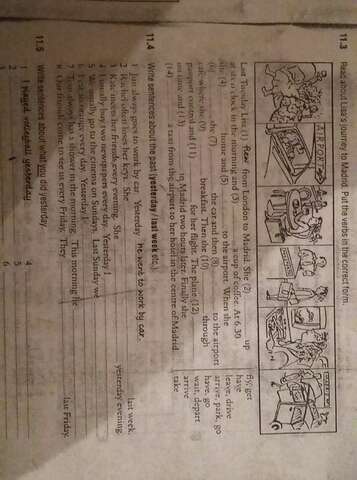 11.3 Read about Lisa's journey to Madrid. Put the verbs in the correct form.
AIRPORT
Last Tuesday Lisa (1) flew from London to Madrid. She (2) up fly, get
at six o'clock in the morning and (3) a cup of coffee. At 6.30 have
she (4) home and (5) to the airport. When she leave, drive
(6) she (7) the car and then (8) to the airport arrive, park, go
café where she (9) breakfast. Then she (10) through have, go
passport control and (11) for her flight. The plane (12) wait, depart
on time and (13) in Madrid two hours later. Finally she arrive
(14) a taxi from the airport to her hotel in the centre of Madrid. take
11.4 Write sentences about the past (yesterday / last week etc.).
1 Jim always goes to work by car. Yesterday he went to work by car.
2 Rachel often loses her keys. last week.
3 Kate meets her friends every evening. She yesterday evening.
4 I usually buy two newspapers every day. Yesterday I
5 We usually go to the cinema on Sundays. Last Sunday we
6 every day. Yesterday I
7 Tom always has a shower in the morning. This morning he
8 Our friends come to see us every Friday. They last Friday.
11.5 Write sentences about what you did yesterday.
1 I played volleyball yesterday 4
2 5
3 6